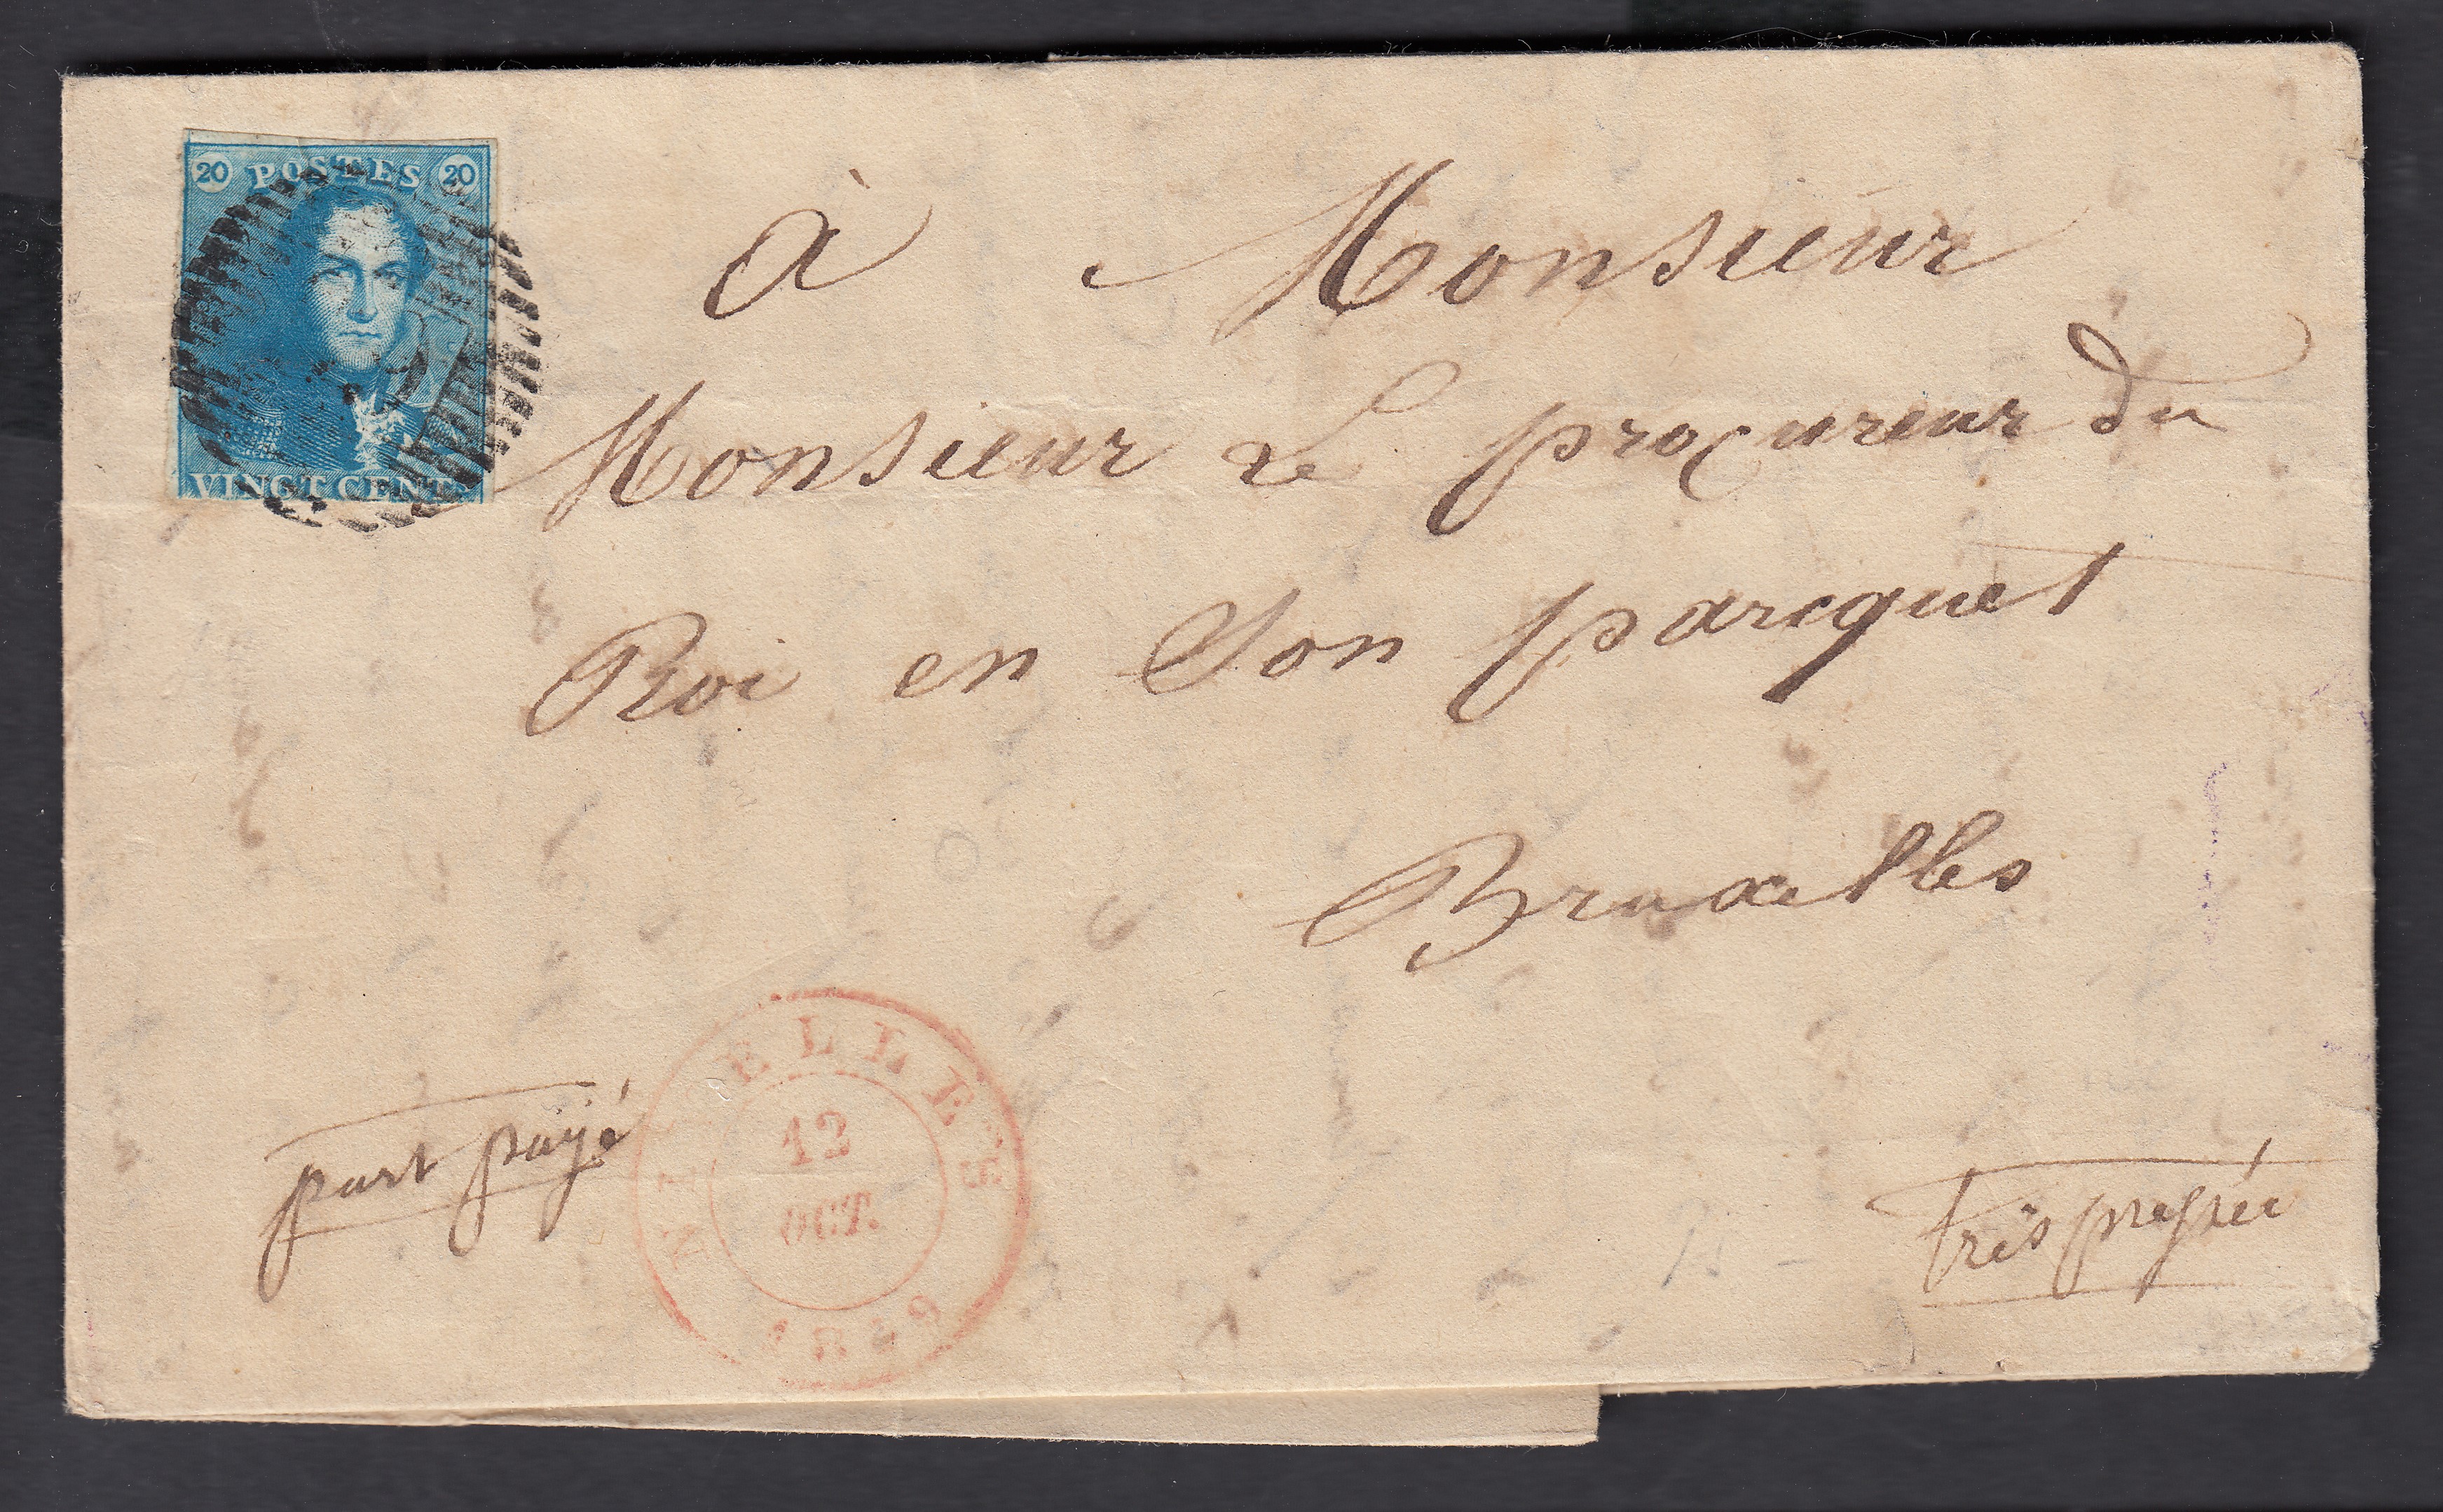 20 POSTES 20
VINGT CENTS
à Monsieur
Monsieur Le procureur du
Roi en Son parcquet
Bruxelles
port payé
NIVELLES
12
OCT.
1849
très pressée